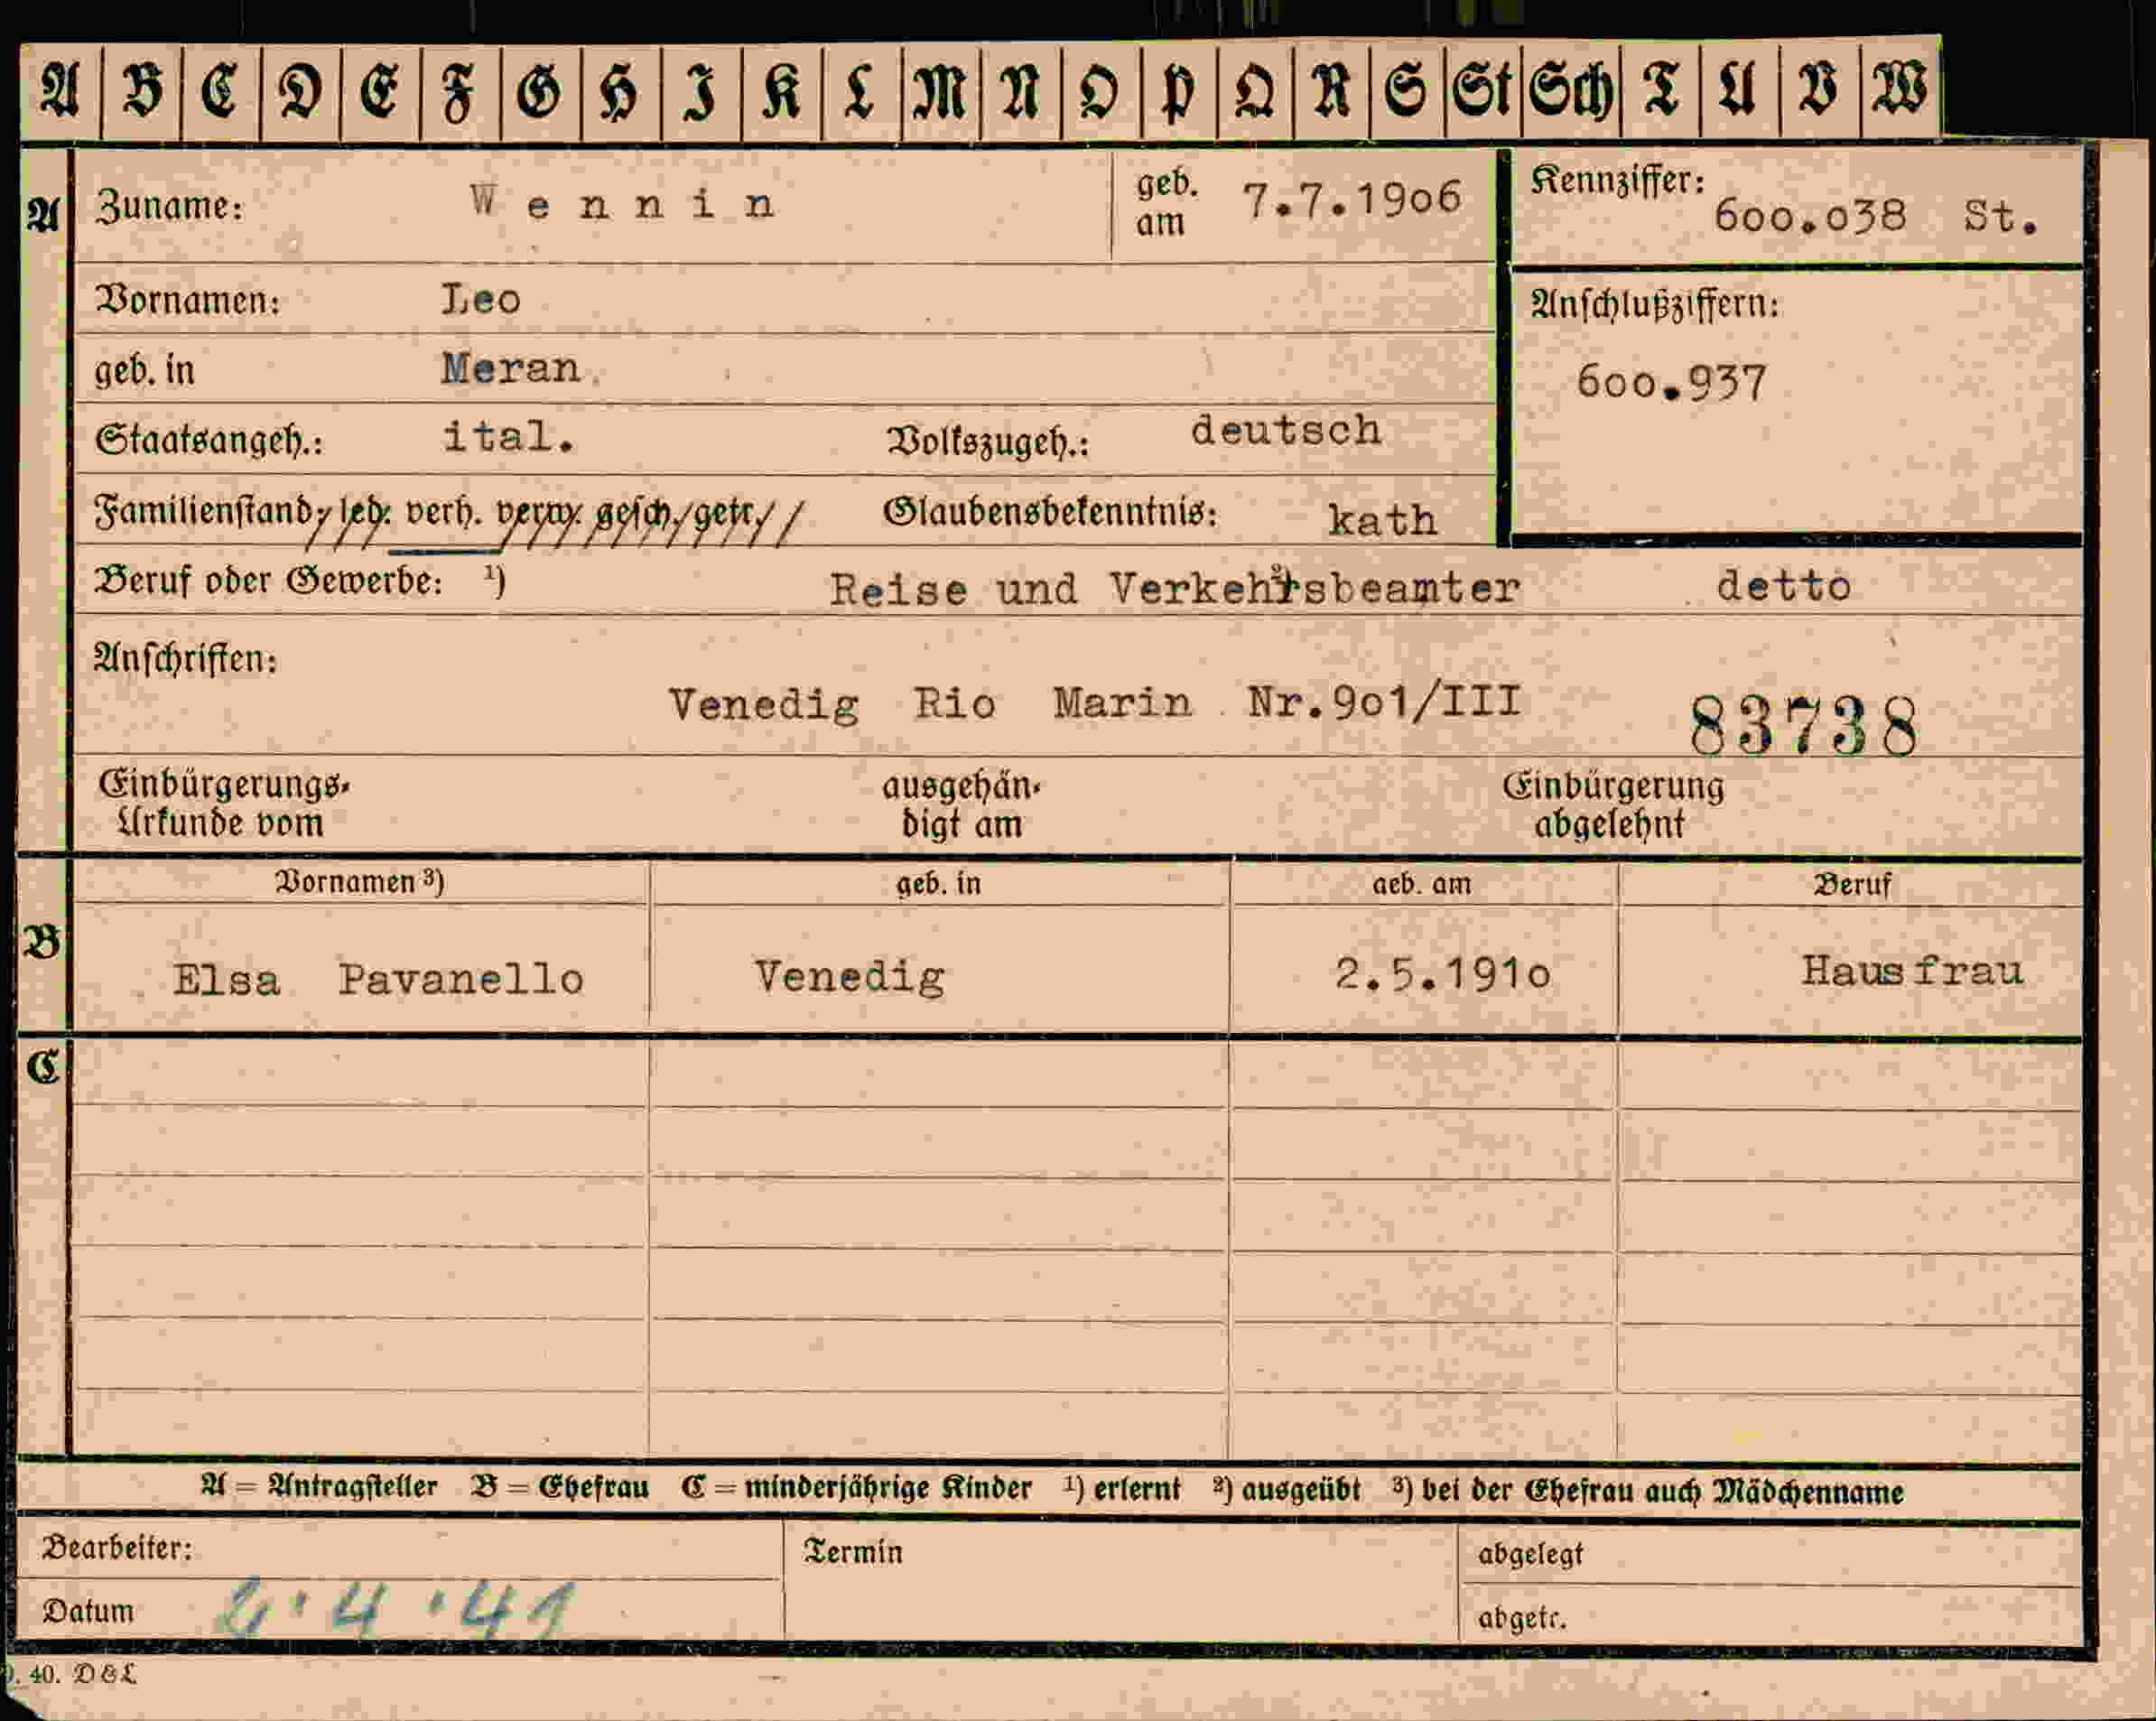 A B C D E F G H I K L M N O P Q R S St Sch T U V W
A Zuname: Wennin geb. am 7.7.1906 Kennziffer: 600.038 St.
Vornamen: Leo Anschlußziffern:
geb. in Meran 600.937
Staatsangeh.: ital. Volkszugeh.: deutsch
Familienstand: led. verh. verw. gesch. getr. Glaubensbekenntnis: kath
Beruf oder Gewerbe: ¹) Reise und Verkehrsbeamter detto
Anschriften:
Venedig Rio Marin Nr.901/III 83738
Einbürgerungs- ausgehän- Einbürgerung
Urkunde vom digt am abgelehnt
Vornamen ³) geb. in geb. am Beruf
B Elsa Pavanello Venedig 2.5.1910 Hausfrau
C
A = Antragsteller B = Ehefrau C = minderjährige Kinder ¹) erlernt ²) ausgeübt ³) bei der Ehefrau auch Mädchenname
Bearbeiter: Termin abgelegt
Datum 4.41 abgetr.
40. D&L